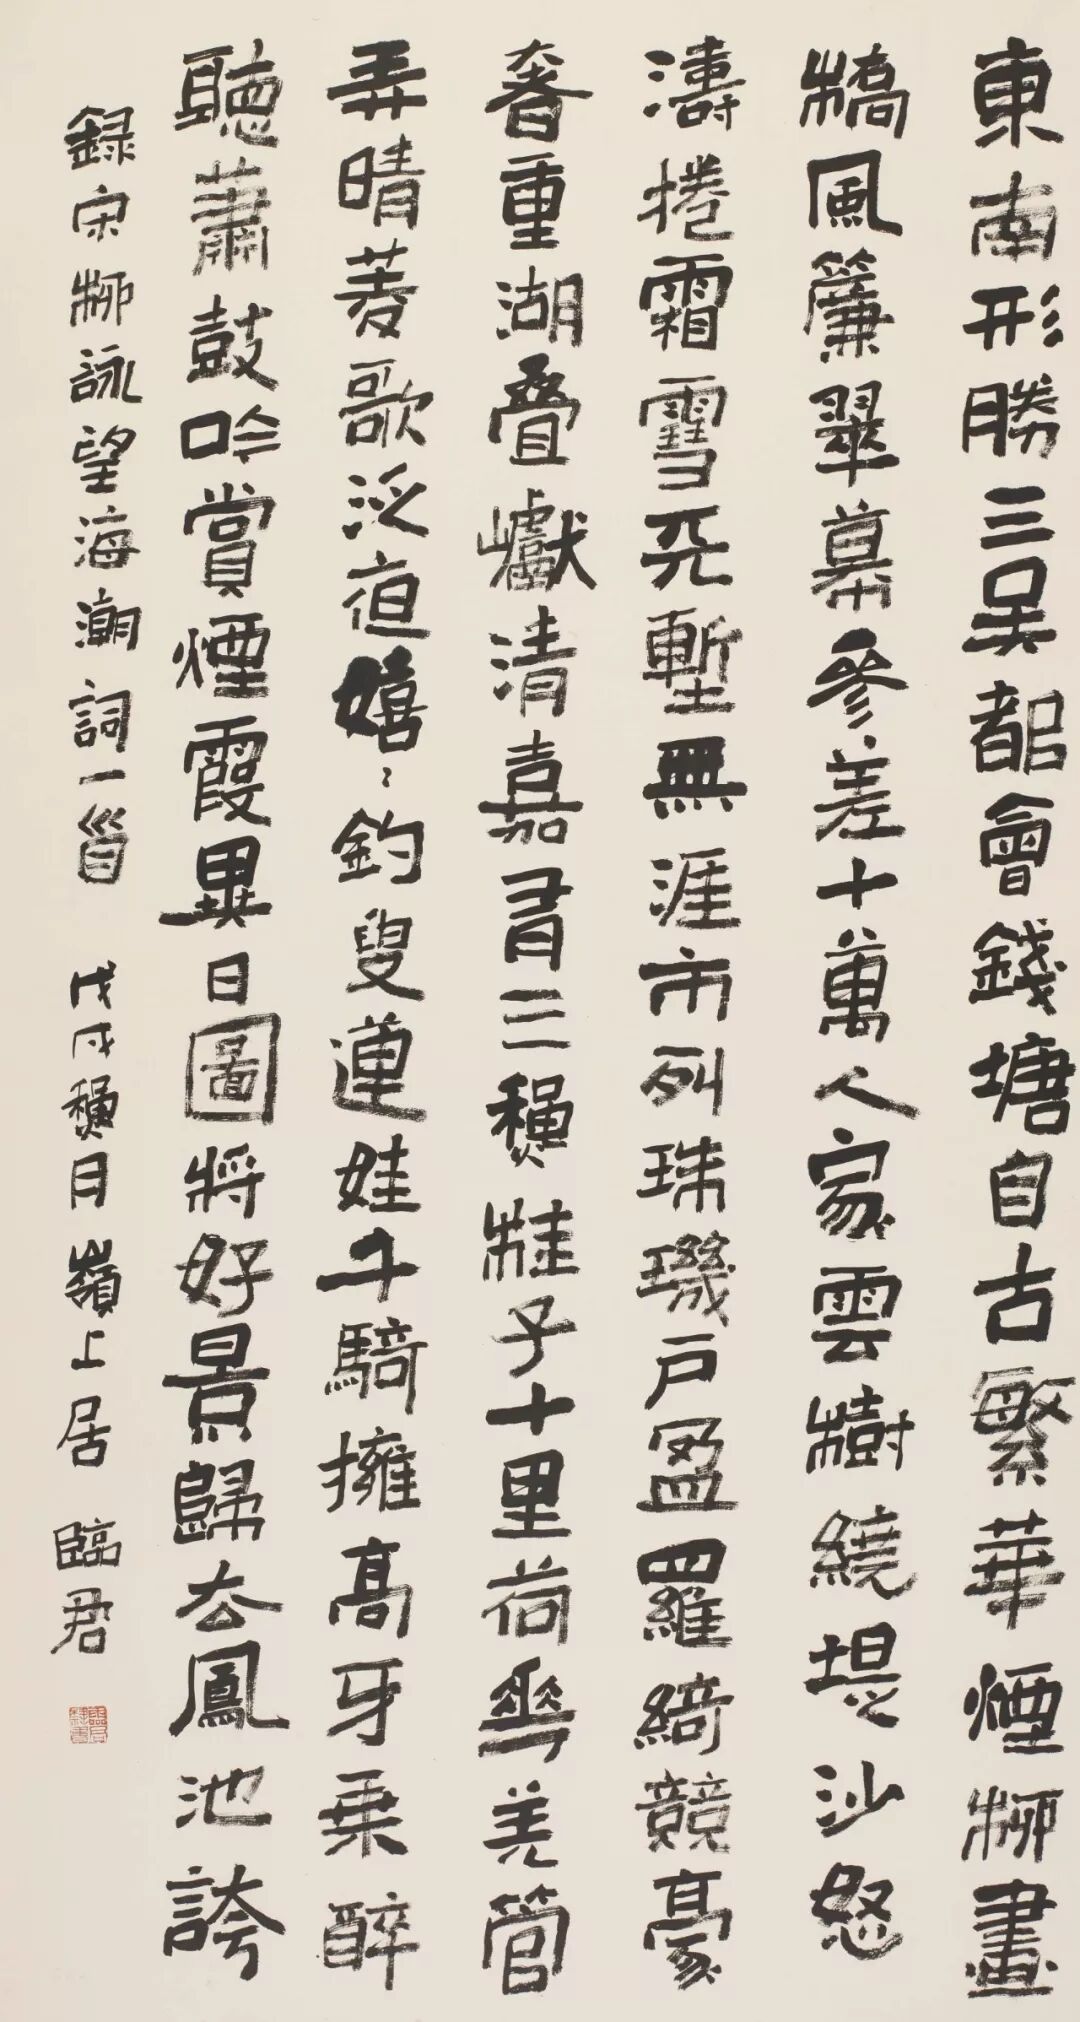 東南形勝三吳都會錢塘自古繁華煙柳畫
橋風簾翠幕參差十萬人家雲樹繞堤沙怒
濤捲霜雪天塹無涯市列珠璣戶盈羅綺競豪
奢重湖叠巘清嘉有三秋桂子十里荷花羌管
弄晴菱歌泛夜嬉〻釣叟蓮娃千騎擁高牙乘醉
聽蕭鼓吟賞煙霞異日圖將好景歸去鳳池誇
錄宋柳詠望海潮詞一首 戊戌秋月嶺上居 臨君